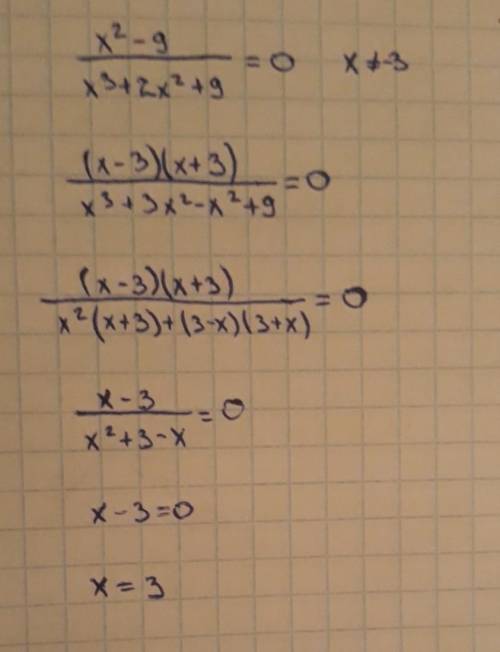 x² - 9 / x³ + 2x² + 9 = 0 x ≠ -3
(x - 3)(x + 3) / x³ + 3x² - x² + 9 = 0
(x - 3)(x + 3) / x²(x + 3) + (3 - x)(3 + x) = 0
x - 3 / x² + 3 - x = 0
x - 3 = 0
x = 3